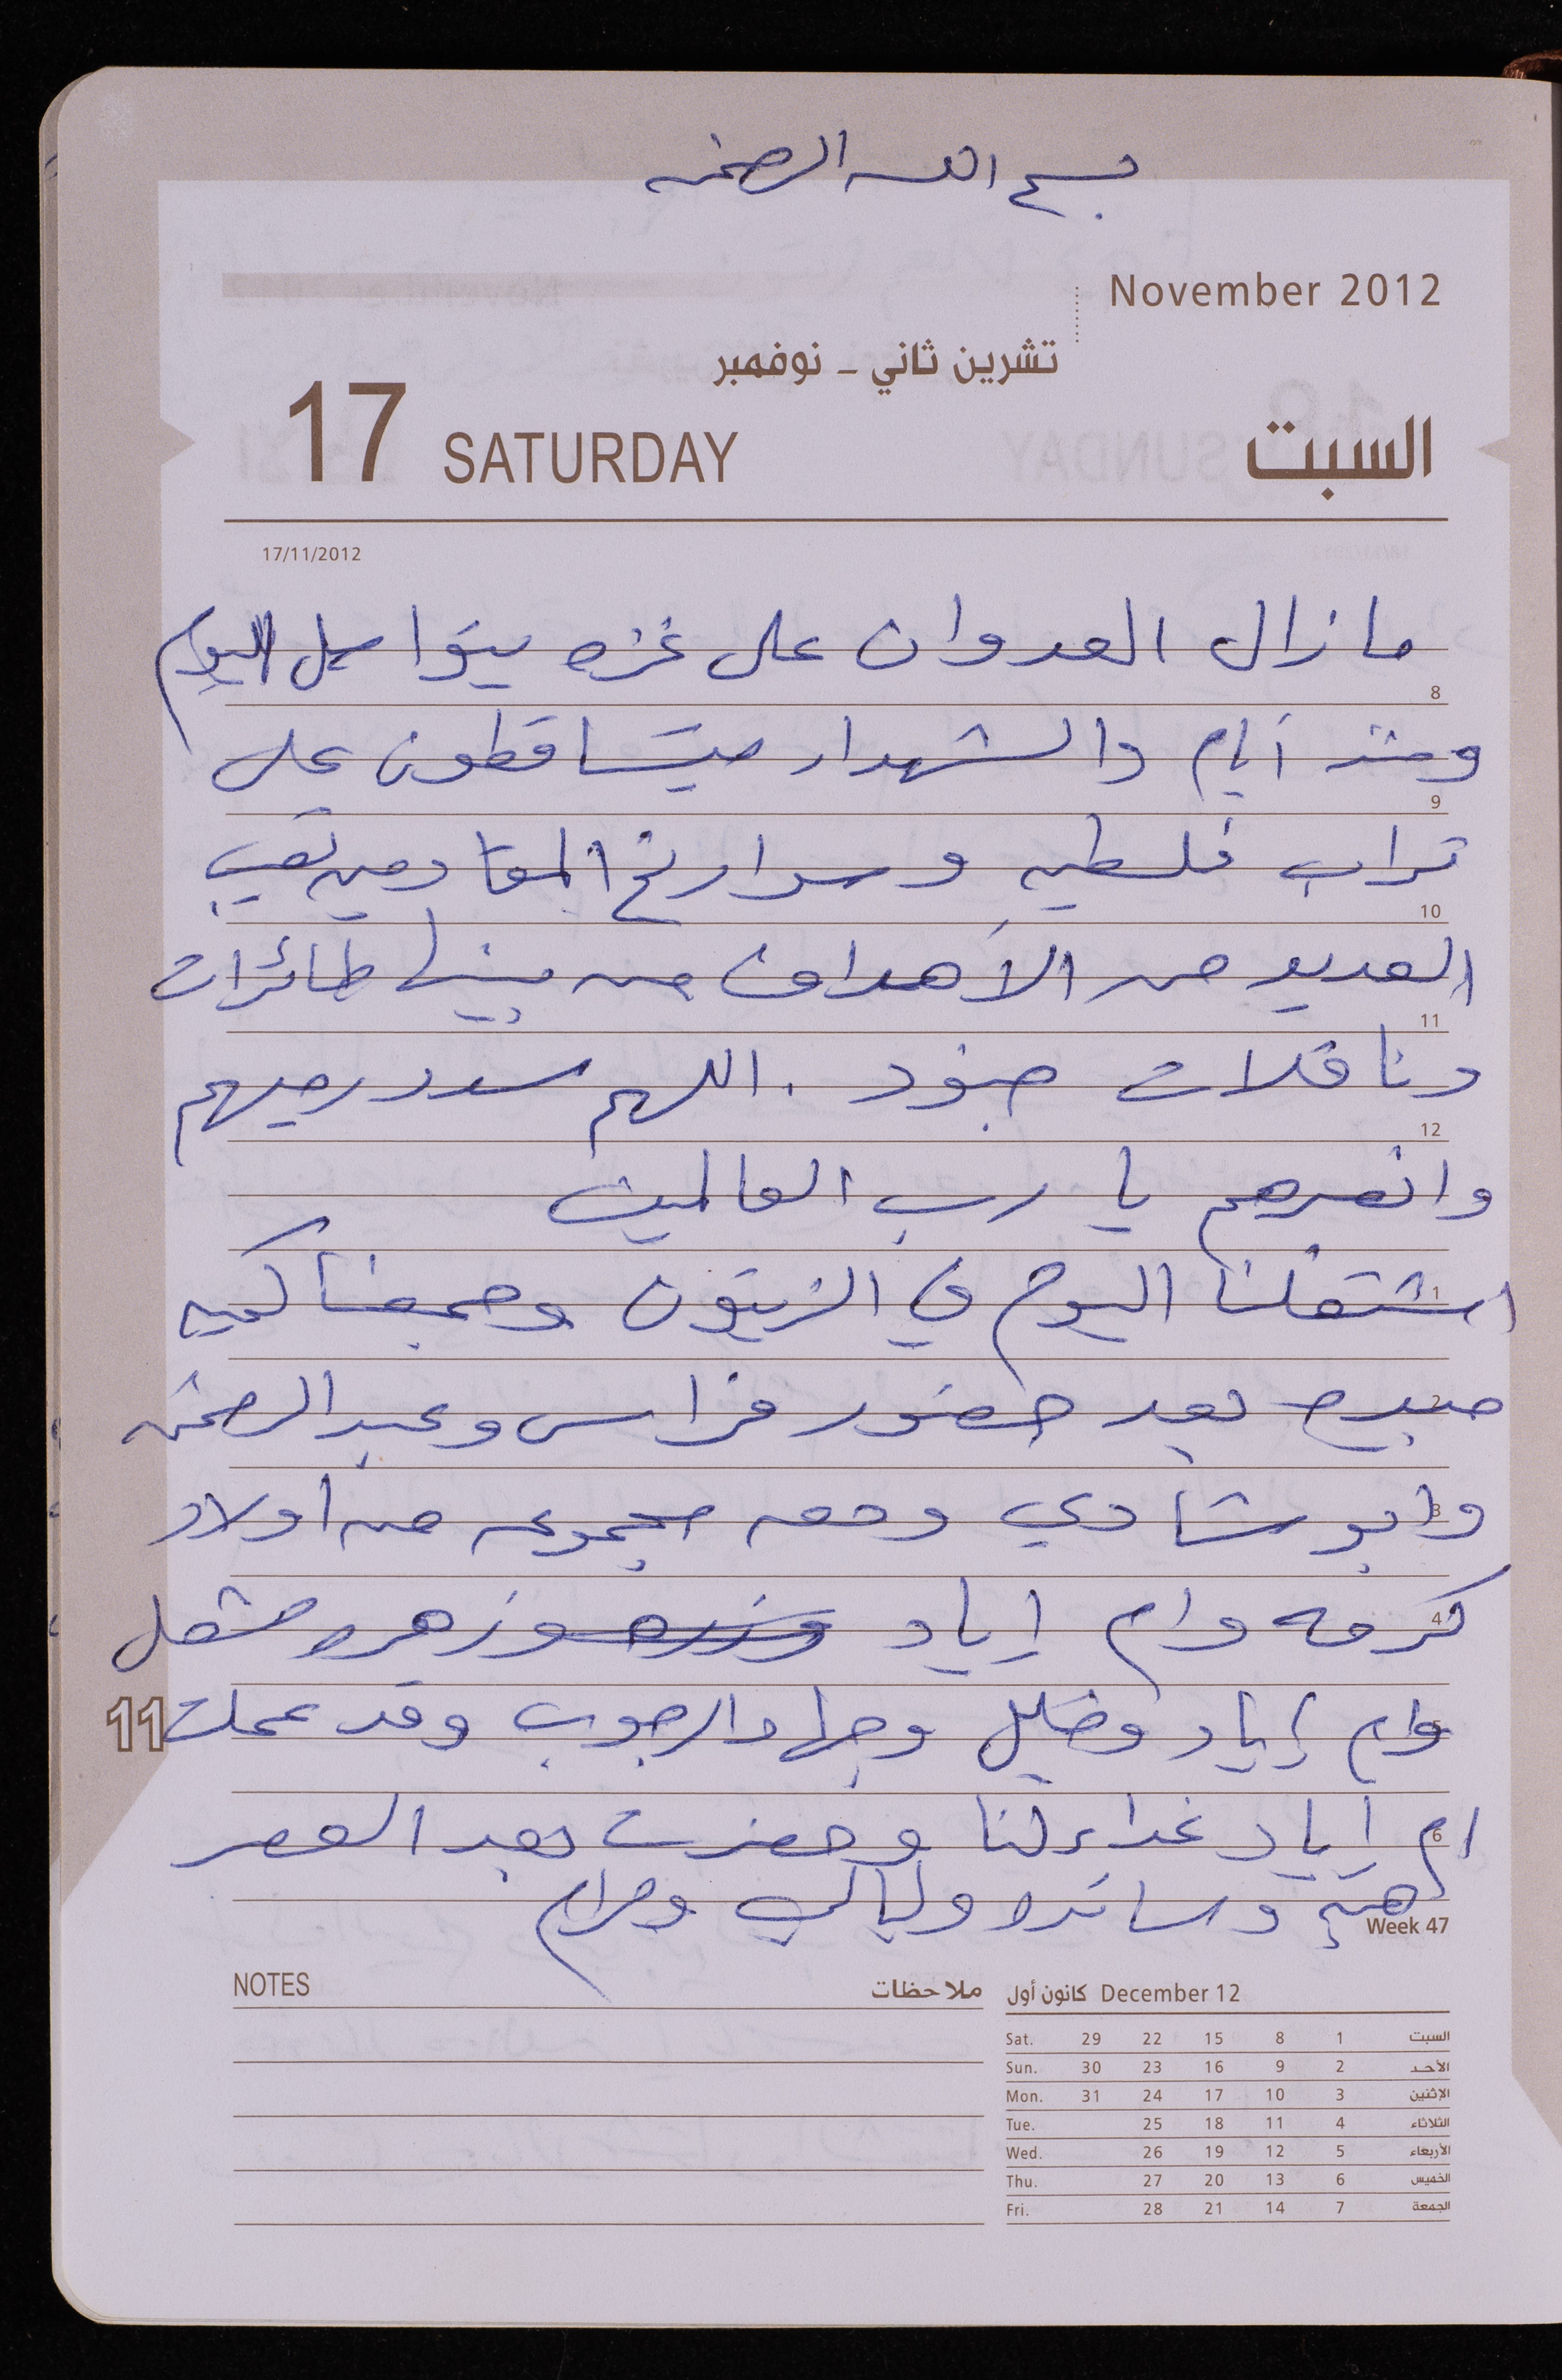 بسم الله الرحمن
November 2012
تشرين ثاني - نوفمبر
17 SATURDAY السبت
17/11/2012
ما زال العدوان على غزه يتواصل اليوم
8
ومنذ أيام والشهداء يتساقطون على
9
تراب فلسطين وصواريخ المقاومين تصيب
10
العديد من الأهداف من بينها طائرات
11
وناقلات جنود . اللهم سدد رميهم
12
وانصرهم يا رب العالمين
اشتغلنا اليوم في الزيتون وجمعنا كميه
1
جيده بعد حضور فراس وعبد الرحمن
2
وابو شادي ومعه مجموعه من اولاد
3
كرمه وام اياد وزهره مشعل
4
وام إياد وجهاد الرجوب وقد عملت
5
11
ام اياد غداء لنا وحضرت بعد العصر
6
وسائده وليالي ومرام
Week 47
NOTES ملاحظات
كانون أول December 12
Sat. 29 22 15 8 1 السبت
Sun. 30 23 16 9 2 الأحد
Mon. 31 24 17 10 3 الإثنين
Tue. 25 18 11 4 الثلاثاء
Wed. 26 19 12 5 الأربعاء
Thu. 27 20 13 6 الخميس
Fri. 28 21 14 7 الجمعة